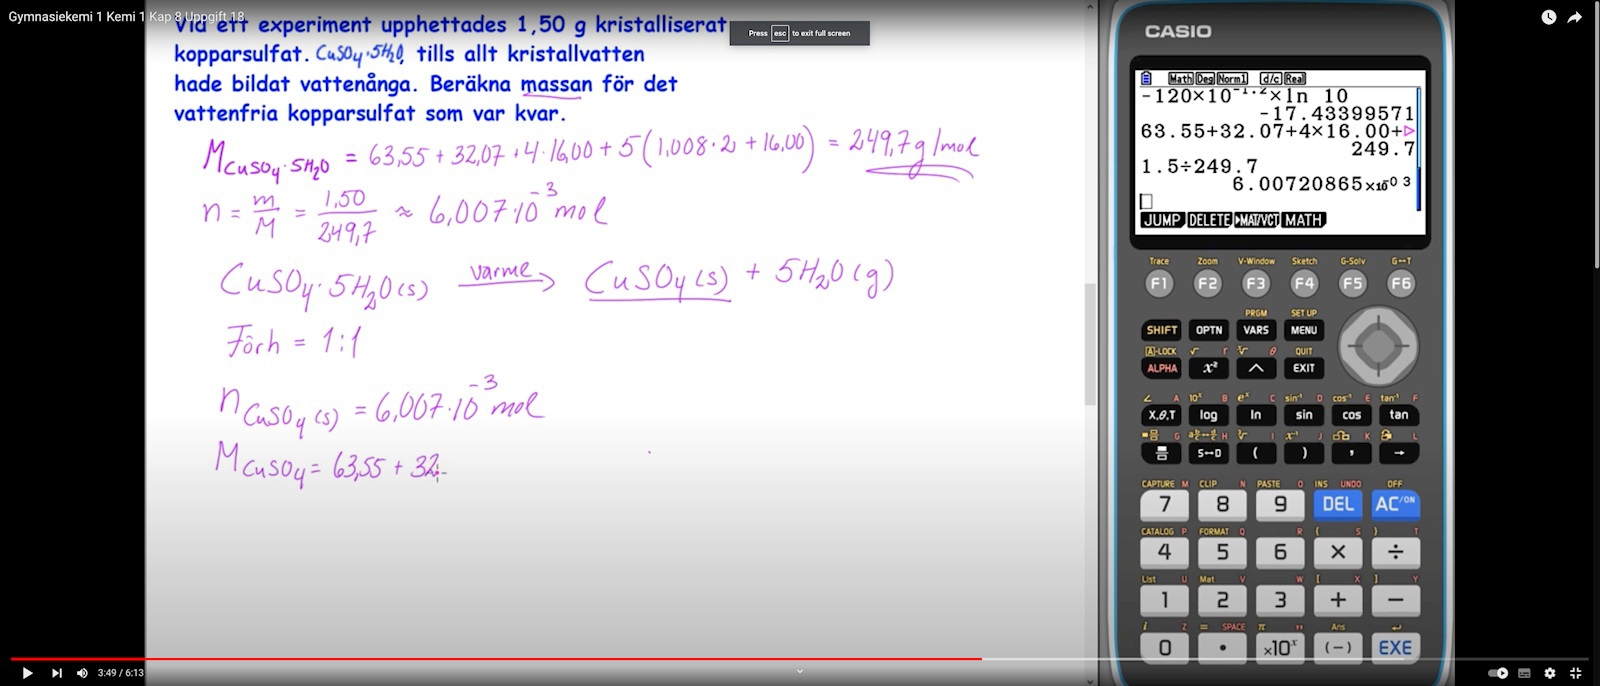 Gymnasiekemi 1 Kemi 1 Kap 8 Uppgift 18.
Press esc to exit full screen
Vid ett experiment upphettades 1,50 g kristalliserat
kopparsulfat. CuSO4·5H2O, tills allt kristallvatten
hade bildat vattenånga. Beräkna massan för det
vattenfria kopparsulfat som var kvar.
M CuSO4·5H2O = 63,55 + 32,07 + 4·16,00 + 5(1,008·2 + 16,00) = 249,7 g/mol
n = m/M = 1,50/249,7 ≈ 6,007·10^-3 mol
CuSO4·5H2O(s) varme → CuSO4(s) + 5H2O(g)
Förh = 1:1
n CuSO4(s) = 6,007·10^-3 mol
M CuSO4 = 63,55 + 32
3:49 / 6:13
CASIO
Math Deg Norm1 d/c Real
-120×10^-1.2×ln 10
-17.43399571
63.55+32.07+4×16.00+
249.7
1.5÷249.7
6.00720865×10^-03
JUMP DELETE ▶MAT/VCT MATH
Trace Zoom V-Window Sketch G-Solv G↔T
F1 F2 F3 F4 F5 F6
PRGM SET UP
SHIFT OPTN VARS MENU
A-LOCK √ r ˣ√ θ QUIT
ALPHA x² ^ EXIT
∠ A 10ˣ B eˣ C sin⁻¹ D cos⁻¹ E tan⁻¹ F
X,θ,T log ln sin cos tan
G H ³√ I x⁻¹ J K L
S↔D ( ) , →
CAPTURE M CLIP N PASTE O INS UNDO OFF
7 8 9 DEL AC/ON
CATALOG P FORMAT Q R { S } T
4 5 6 × ÷
List U Mat V W [ X ] Y
1 2 3 + −
i Z = SPACE π " Ans
0 . ×10ˣ (−) EXE